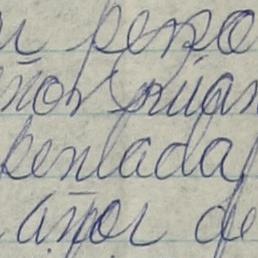 u perso
eñor Juan
pentada
años de